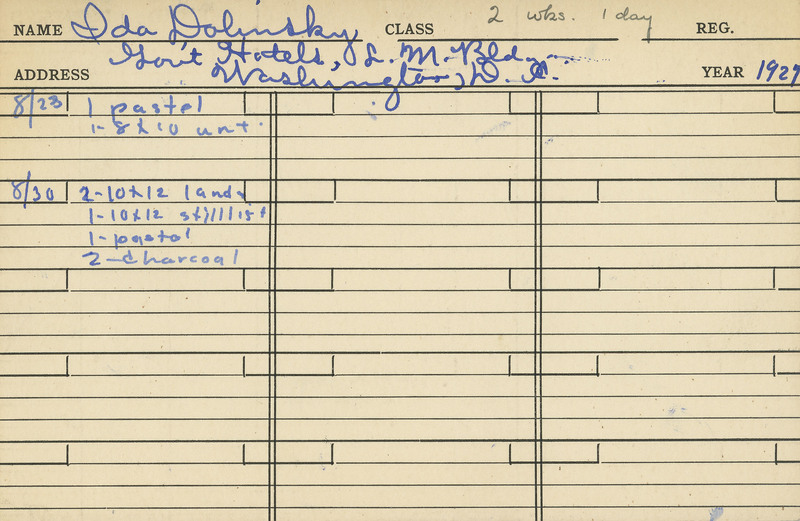 NAME Ida Dolinsky CLASS 2 wks. 1 day REG.
ADDRESS Gov't Hotels, L. M. Bldg.
Washington, D. C. YEAR 1927
8/23 1 pastel
1-8x10 unt.
8/30 2-10x12 lands
1-10x12 still
1-pastel
2-charcoal